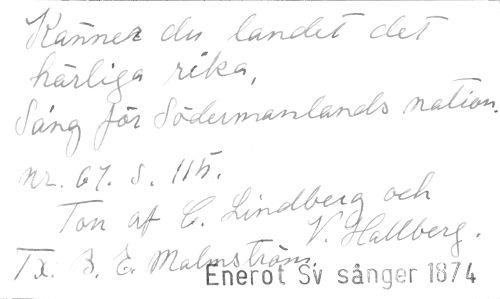 Känner du landet det
härliga rika,
Sång för Södermanlands nation.
nr. 67. s. 115.
Ton af C. Lindberg och
V. Hallberg.
Tx. B. E. Malmström.
Enerot Sv sånger 1874